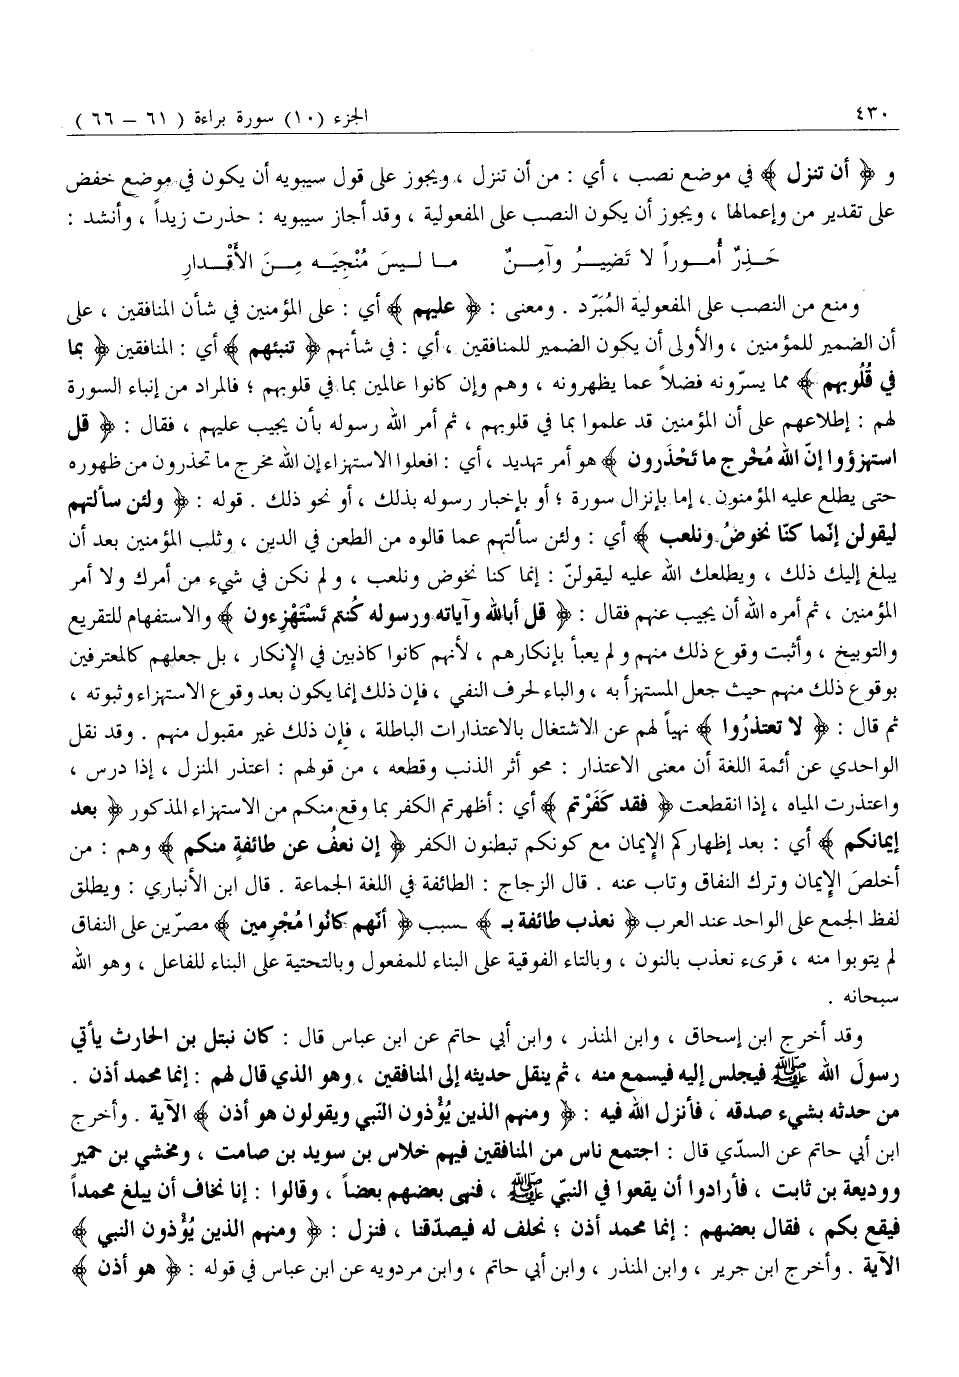 ٤٣٠ الجزء (١٠) سورة براءة ( ٦١ – ٦٦ )
و ﴿ أن تنزل ﴾ في موضع نصب ، أي : من أن تنزل ، ويجوز على قول سيبويه أن يكون في موضع خفض
على تقدير من وإعمالها ، ويجوز أن يكون النصب على المفعولية ، وقد أجاز سيبويه : حذرت زيداً ، وأنشد :
حَـذِرٌ أُمـوراً لا تَضِيـرُ وآمِـنٌ مـا ليـسَ مُنْجِيَـه مِـنَ الأَقْـدارِ
ومنع من النصب على المفعولية المُبَرِّد . ومعنى : ﴿ عليهم ﴾ أي : على المؤمنين في شأن المنافقين ، على
أن الضمير للمؤمنين ، والأولى أن يكون الضمير للمنافقين ، أي : في شأنهم ﴿ تنبئهم ﴾ أي : المنافقين ﴿ بما
في قُلُوبهم ﴾ مما يسرّونه فضلاً عما يظهرونه ، وهم وإن كانوا عالمين بما في قلوبهم ؛ فالمراد من إنباء السورة
لهم : إطلاعهم على أن المؤمنين قد علموا بما في قلوبهم ، ثم أمر الله رسوله بأن يجيب عليهم ، فقال : ﴿ قل
استهزؤوا إنّ الله مُخْرج ما تَحْذَرون ﴾ هو أمر تهديد ، أي : افعلوا الاستهزاء إن الله مخرج ما تحذرون من ظهوره
حتى يطلع عليه المؤمنون ، إما بإنزال سورة ؛ أو بإخبار رسوله بذلك ، أو نحو ذلك . قوله : ﴿ ولئن سألتهم
ليقولن إنّما كنّا نخوضُ ونلعب ﴾ أي : ولئن سألتهم عما قالوه من الطعن في الدين ، وثلب المؤمنين بعد أن
يبلغ إليك ذلك ، ويطلعك الله عليه ليقولنّ : إنما كنا نخوض ونلعب ، ولم نكن في شيء من أمرك ولا أمر
المؤمنين ، ثم أمره الله أن يجيب عنهم فقال : ﴿ قل أبالله وآياته ورسوله كُنتم تَسْتَهْزِءون ﴾ والاستفهام للتقريع
والتوبيخ ، وأثبت وقوع ذلك منهم ولم يعبأ بإنكارهم ، لأنهم كانوا كاذبين في الإنكار ، بل جعلهم كالمعترفين
بوقوع ذلك منهم حيث جعل المستهزأ به ، والباء لحرف النفي ، فإن ذلك إنما يكون بعد وقوع الاستهزاء وثبوته ،
ثم قال : ﴿ لا تعتذرُوا ﴾ نهياً لهم عن الاشتغال بالاعتذارات الباطلة ، فإن ذلك غير مقبول منهم . وقد نقل
الواحدي عن أئمة اللغة أن معنى الاعتذار : محو أثر الذنب وقطعه ، من قولهم : اعتذر المنزل ، إذا درس ،
واعتذرت المياه ، إذا انقطعت ﴿ فقد كَفَرْتم ﴾ أي : أظهرتم الكفر بما وقع منكم من الاستهزاء المذكور ﴿ بعد
إيمانكم ﴾ أي : بعد إظهاركم الإيمان مع كونكم تبطنون الكفر ﴿ إن نعفُ عن طائفةٍ منكم ﴾ وهم : من
أخلصَ الإيمان وترك النفاق وتاب عنه . قال الزجاج : الطائفة في اللغة الجماعة . قال ابن الأنباري : ويطلق
لفظ الجمع على الواحد عند العرب ﴿ نعذب طائفة بـ ﴾ ـسبب ﴿ أنّهم كانُوا مُجْرِمين ﴾ مصرّين على النفاق
لم يتوبوا منه ، قرىء نعذب بالنون ، وبالتاء الفوقية على البناء للمفعول وبالتحتية على البناء للفاعل ، وهو الله
سبحانه .
وقد أخرج ابن إسحاق ، وابن المنذر ، وابن أبي حاتم عن ابن عباس قال : كان نبتل بن الحارث يأتي
رسولَ الله ﷺ فيجلس إليه فيسمع منه ، ثم ينقل حديثه إلى المنافقين ، وهو الذي قال لهم : إنما محمد أذن .
من حدثه بشيء صدقه ، فأنزل الله فيه : ﴿ ومنهم الذين يُؤْذون النّبي ويقولون هو أذن ﴾ الآية . وأخرج
ابن أبي حاتم عن السدّي قال : اجتمع ناس من المنافقين فيهم خلاس بن سويد بن صامت ، ومخشي بن حمير
ووديعة بن ثابت ، فأرادوا أن يقعوا في النبيّ ﷺ ، فنهى بعضهم بعضاً ، وقالوا : إنا نخاف أن يبلغ محمداً
فيقع بكم ، فقال بعضهم : إنما محمد أذن ؛ نحلف له فيصدّقنا ، فنزل : ﴿ ومنهم الذين يُؤْذون النبي ﴾
الآية . وأخرج ابن جرير ، وابن المنذر ، وابن أبي حاتم ، وابن مردويه عن ابن عباس في قوله : ﴿ هو أذن ﴾